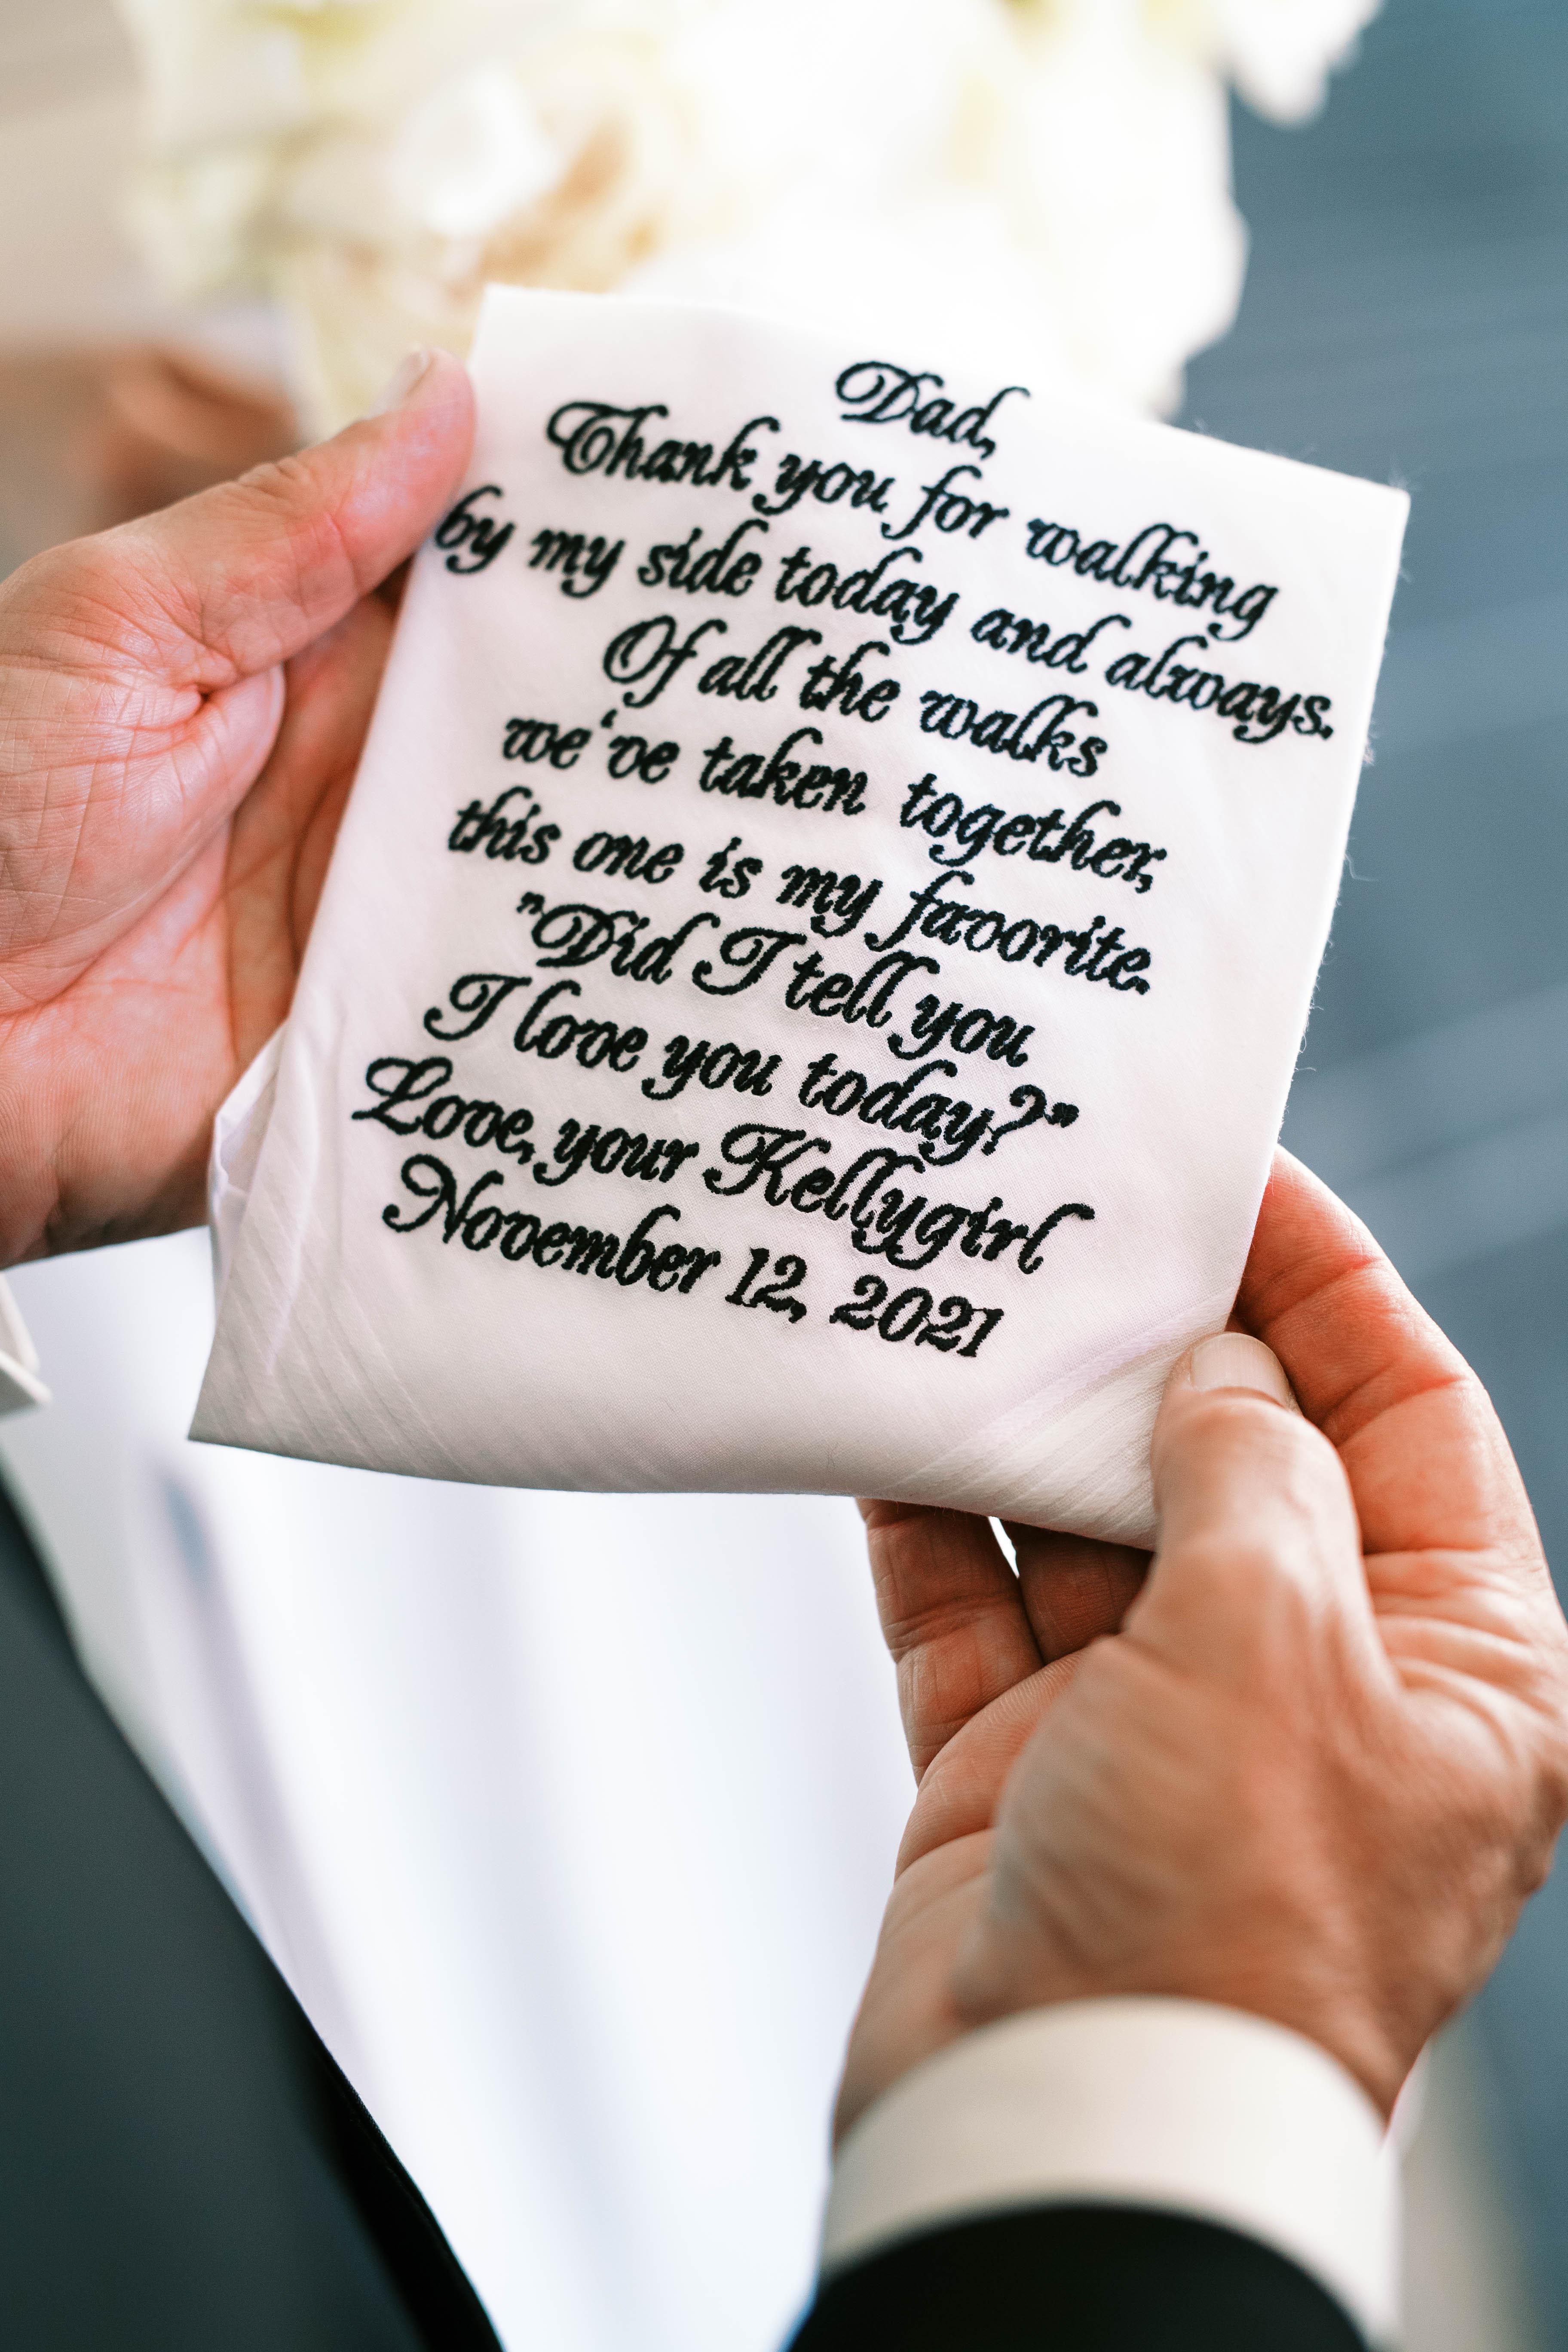 Dad,
Thank you for walking
by my side today and always.
Of all the walks
we've taken together,
this one is my favorite.
"Did I tell you
I love you today?"
Love, your Kellygirl
November 12, 2021